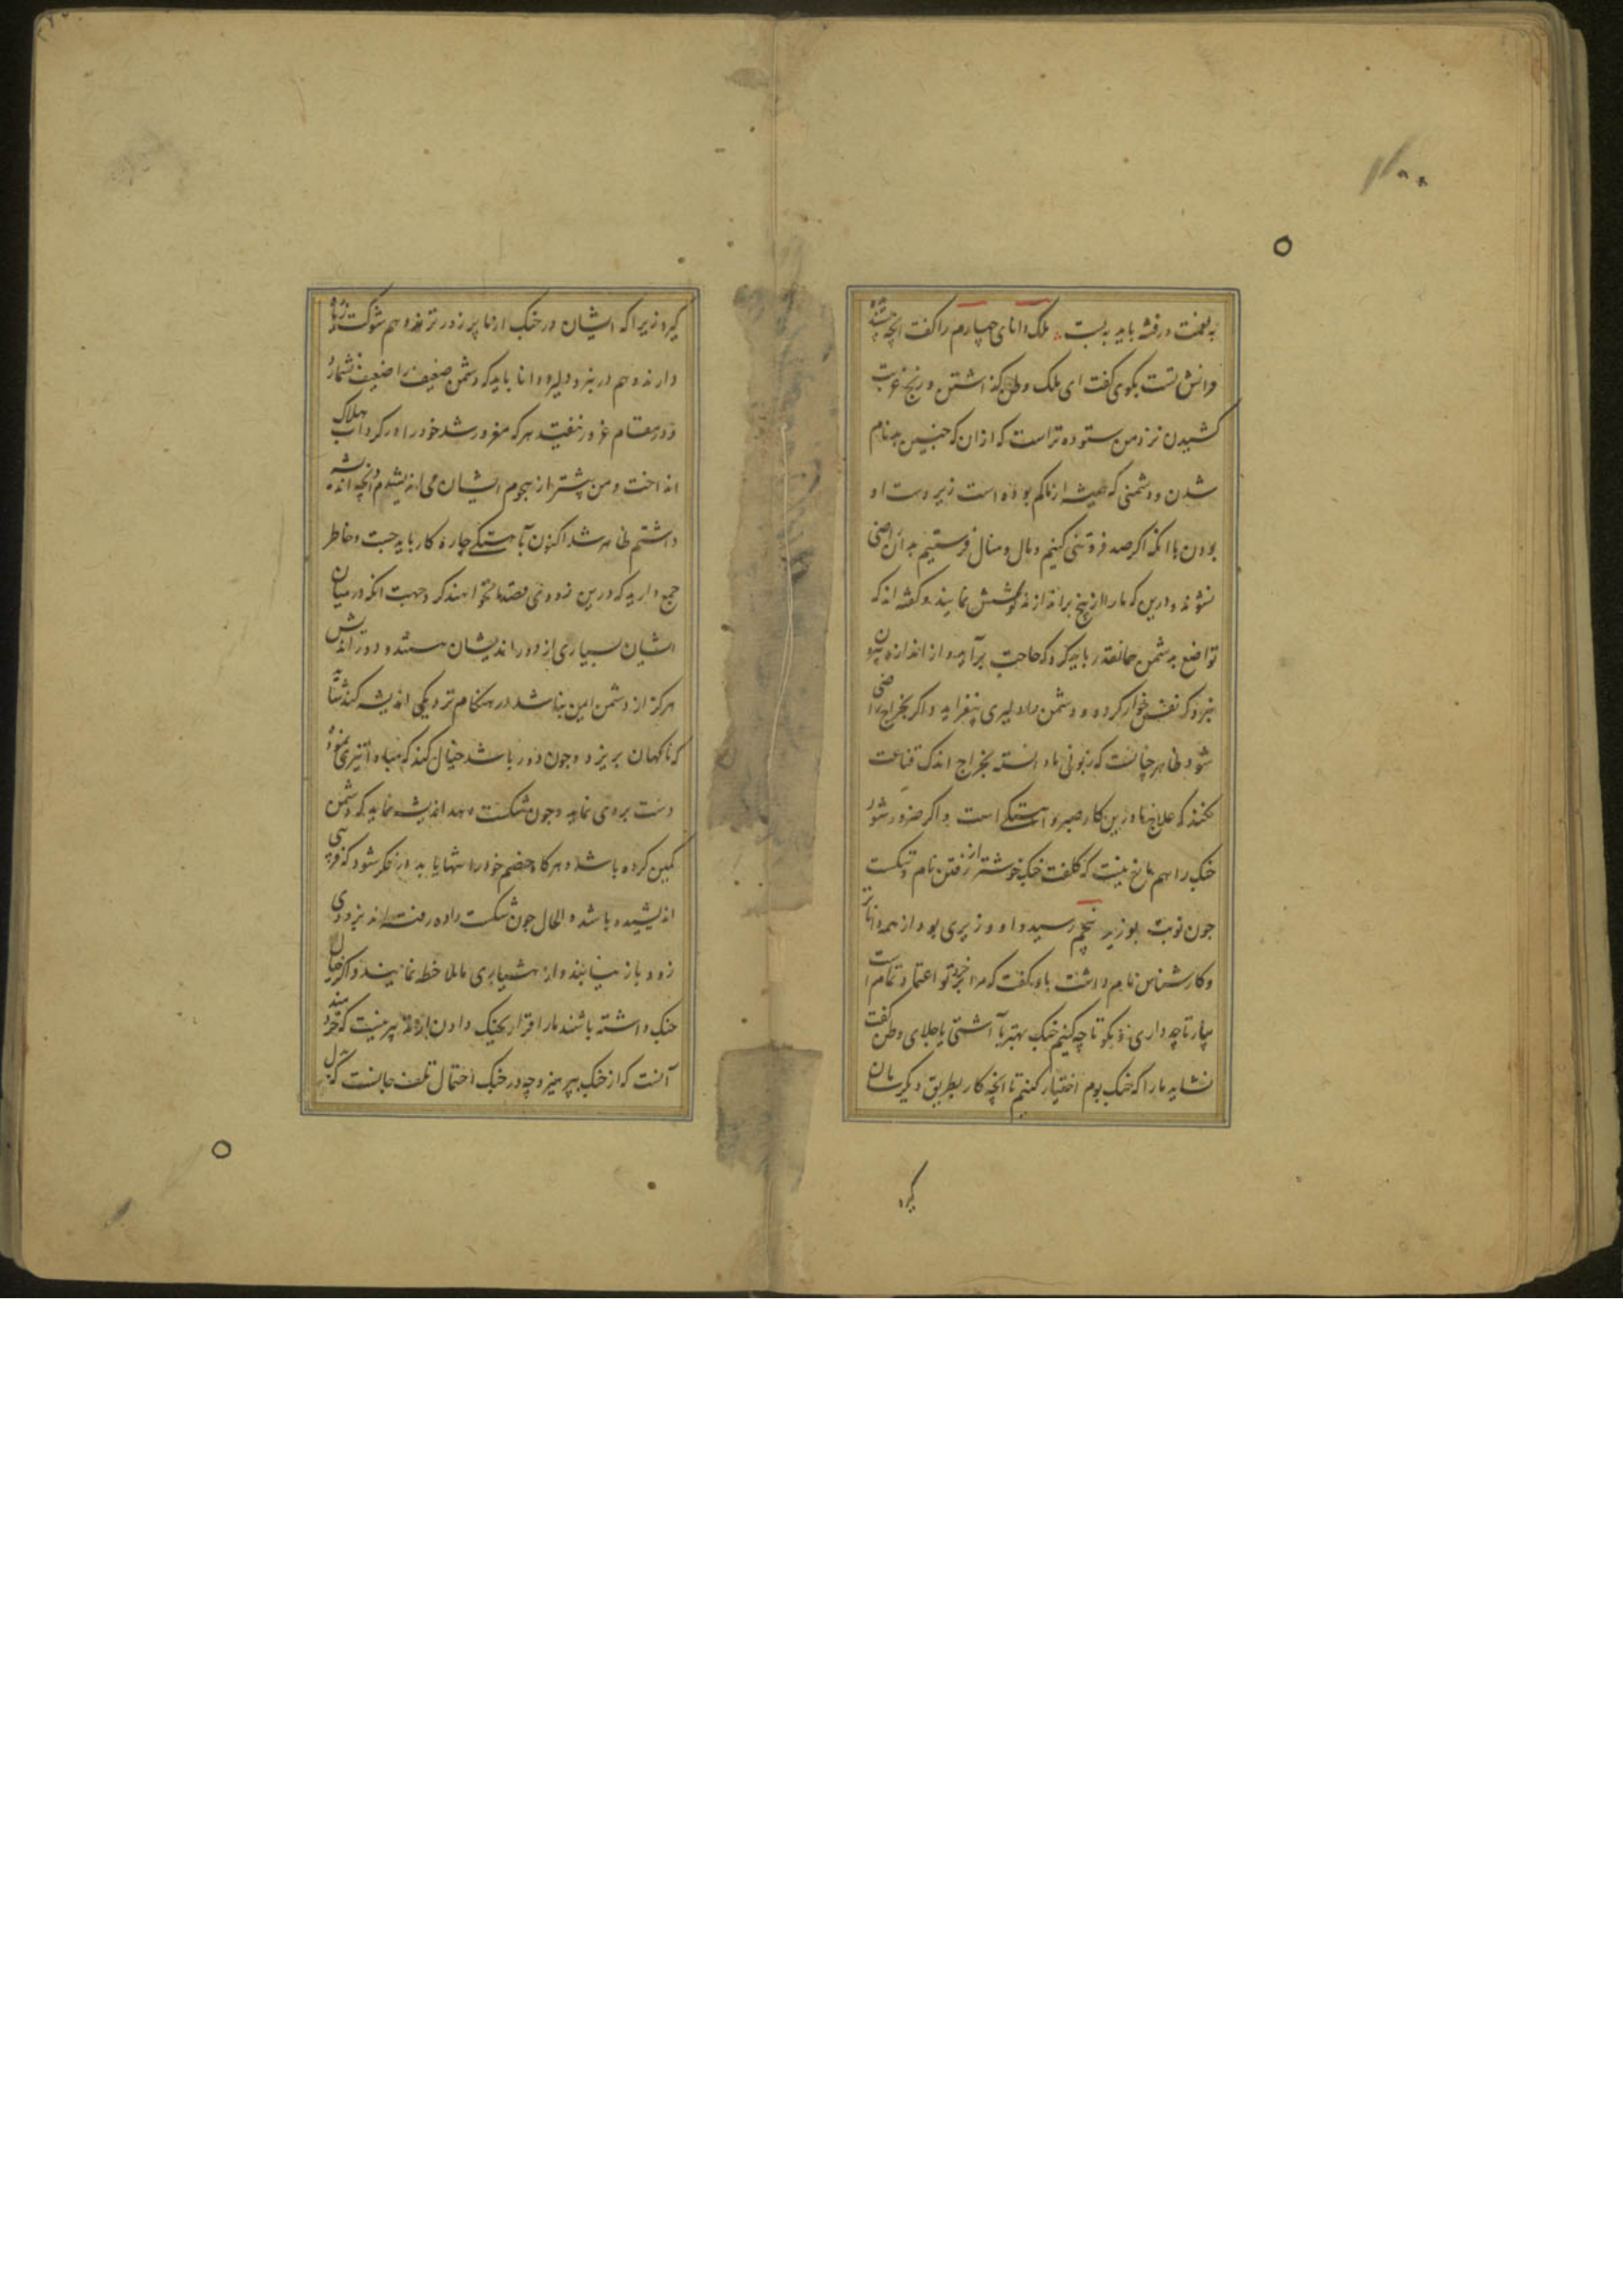 به لعنت در فتنه باید بست ملک دانای چهارم را گفت آنچه
دانش تست بگوی گفت ای ملک وطن گذاشتن و رنج غربت
کشیدن نزد من ستوده تر است که از آن که چنین بدنام
شدن و دشمنی که همیشه از ما کم بوده است زیر دست او
بودن با آنکه اگر صد فروتنی کنیم و مال و منال فرستیم بدان راضی
نشوند و درین که ما را از بیخ براندازند کوشش نمایند و گفته اند که
تواضع به دشمن همانقدر باید کرد که حاجت برآید و از اندازه بیرون
نبرد که نفس خوار کرده و دشمن را دلیری بیفزاید و اگر بخراج راضی
شود ظاهر چنانست که زبونی ما دانسته بخراج اندک قناعت
نکنند که علاج ما درین کار صبر و آهستگی است و اگر ضرور شود
جنگ را هم مانع نیست که کلفت جنگ خوشتر از رفتن نام و
چون نوبت بوزیر پنجم رسید و او وزیری بود از همه داناتر
و کارشناس نام داشت باو گفت که مرا بخرد تو اعتماد تمام است
بیار تا چه داری و بگو تا چه کنیم جنگ بهتر یا آشتی یا جلای وطن گفت
نشاید ما را که جنگ بوم اختیار کنیم تا آنچه کار بطریق دیگر سامان
گیرد
گیرد زیرا که ایشان در جنگ از ما پر زورترند و هم شوکت زیاده
دارند و هم در نبرد دلیرند و دانا باید که دشمن ضعیف را ضعیف نشمارد
و در مقام غرور نیفتد هر که مغرور شد خود را در گرداب هلاک
انداخت و من پیشتر از هجوم ایشان می اندیشیدم و آنچه اندیشه
داشتم ظاهر شد اکنون بآهستگی چاره کار باید جست و خاطر
جمع دارید که درین زودی قصد ما نخواهند کرد جهت آنکه در میان
ایشان بسیاری از دور اندیشان هستند و دور اندیش
هرگز از دشمن ایمن نباشد در هنگام نزدیکی اندیشه کند شاید
که ناگهان بریزد و چون دور باشد خیال کند که مبادا تیزی نموده
دست بردی نماید و چون شکست دهد اندیشه نماید که دشمن
کمین کرده باشد و هرگاه خصم خود را تنها یابد در فکر شود که فریبی
اندیشیده باشد الحال چون شکست داده رفته اند بزودی
زود باز نیایند و از هشیاری ملاحظه نمایند و اگر خیال
جنگ داشته باشند ما را قرار بجنگ دادن از تدبیر نیست که خردمند
آنست که از جنگ بپرهیزد چه در جنگ احتمال تلف جانست که بدل